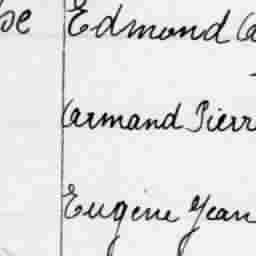 Edmond
Armand Pierr
Eugène Jean